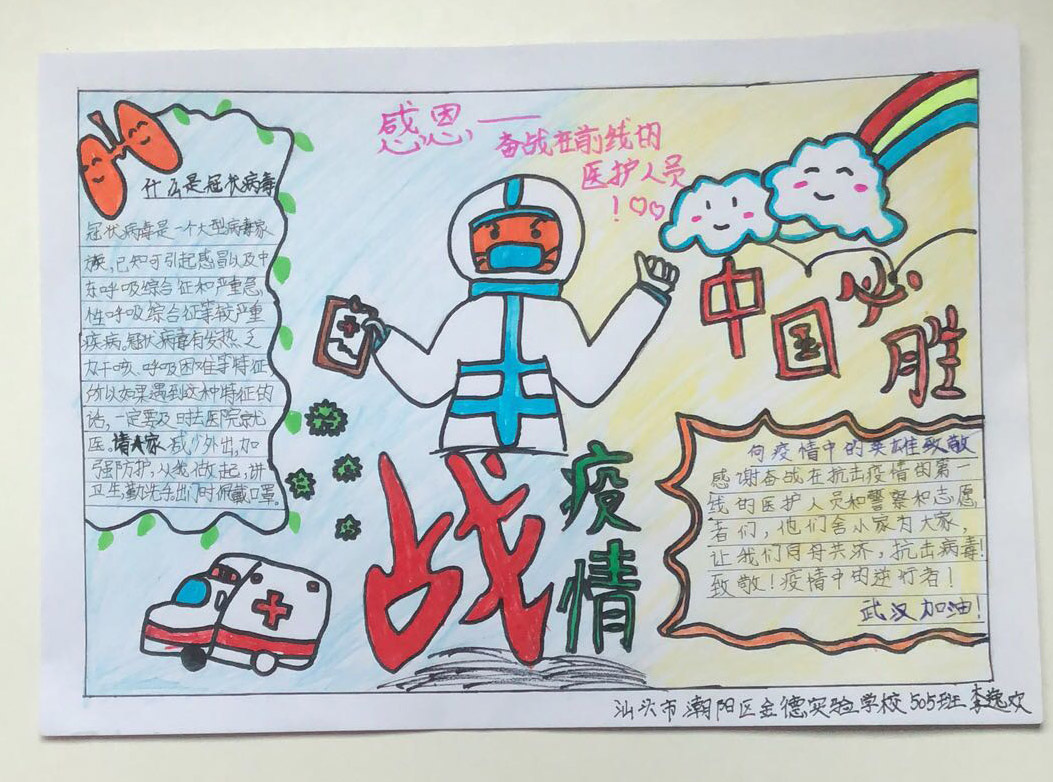 感恩——
奋战在前线的
医护人员
!
什么是冠状病毒
冠状病毒是一个大型病毒家
族,已知可引起感冒以及中
东呼吸综合征和严重急
性呼吸综合征等较严重
疾病,冠状病毒有发热、乏
力干咳、呼吸困难等特征
所以如果遇到这种特征的
话,一定要及时去医院就
医。请大家减少外出,加
强防护,从我做起,讲
卫生,勤洗手出门时佩戴口罩。
中国必胜
战疫情
向疫情中的英雄致敬
感谢奋战在抗击疫情的第一
线的医护人员和警察和志愿
者们,他们舍小家为大家,
让我们同舟共济,抗击病毒!
致敬!疫情中的逆行者!
武汉加油!
汕头市潮阳区金德实验学校505班李逸欢